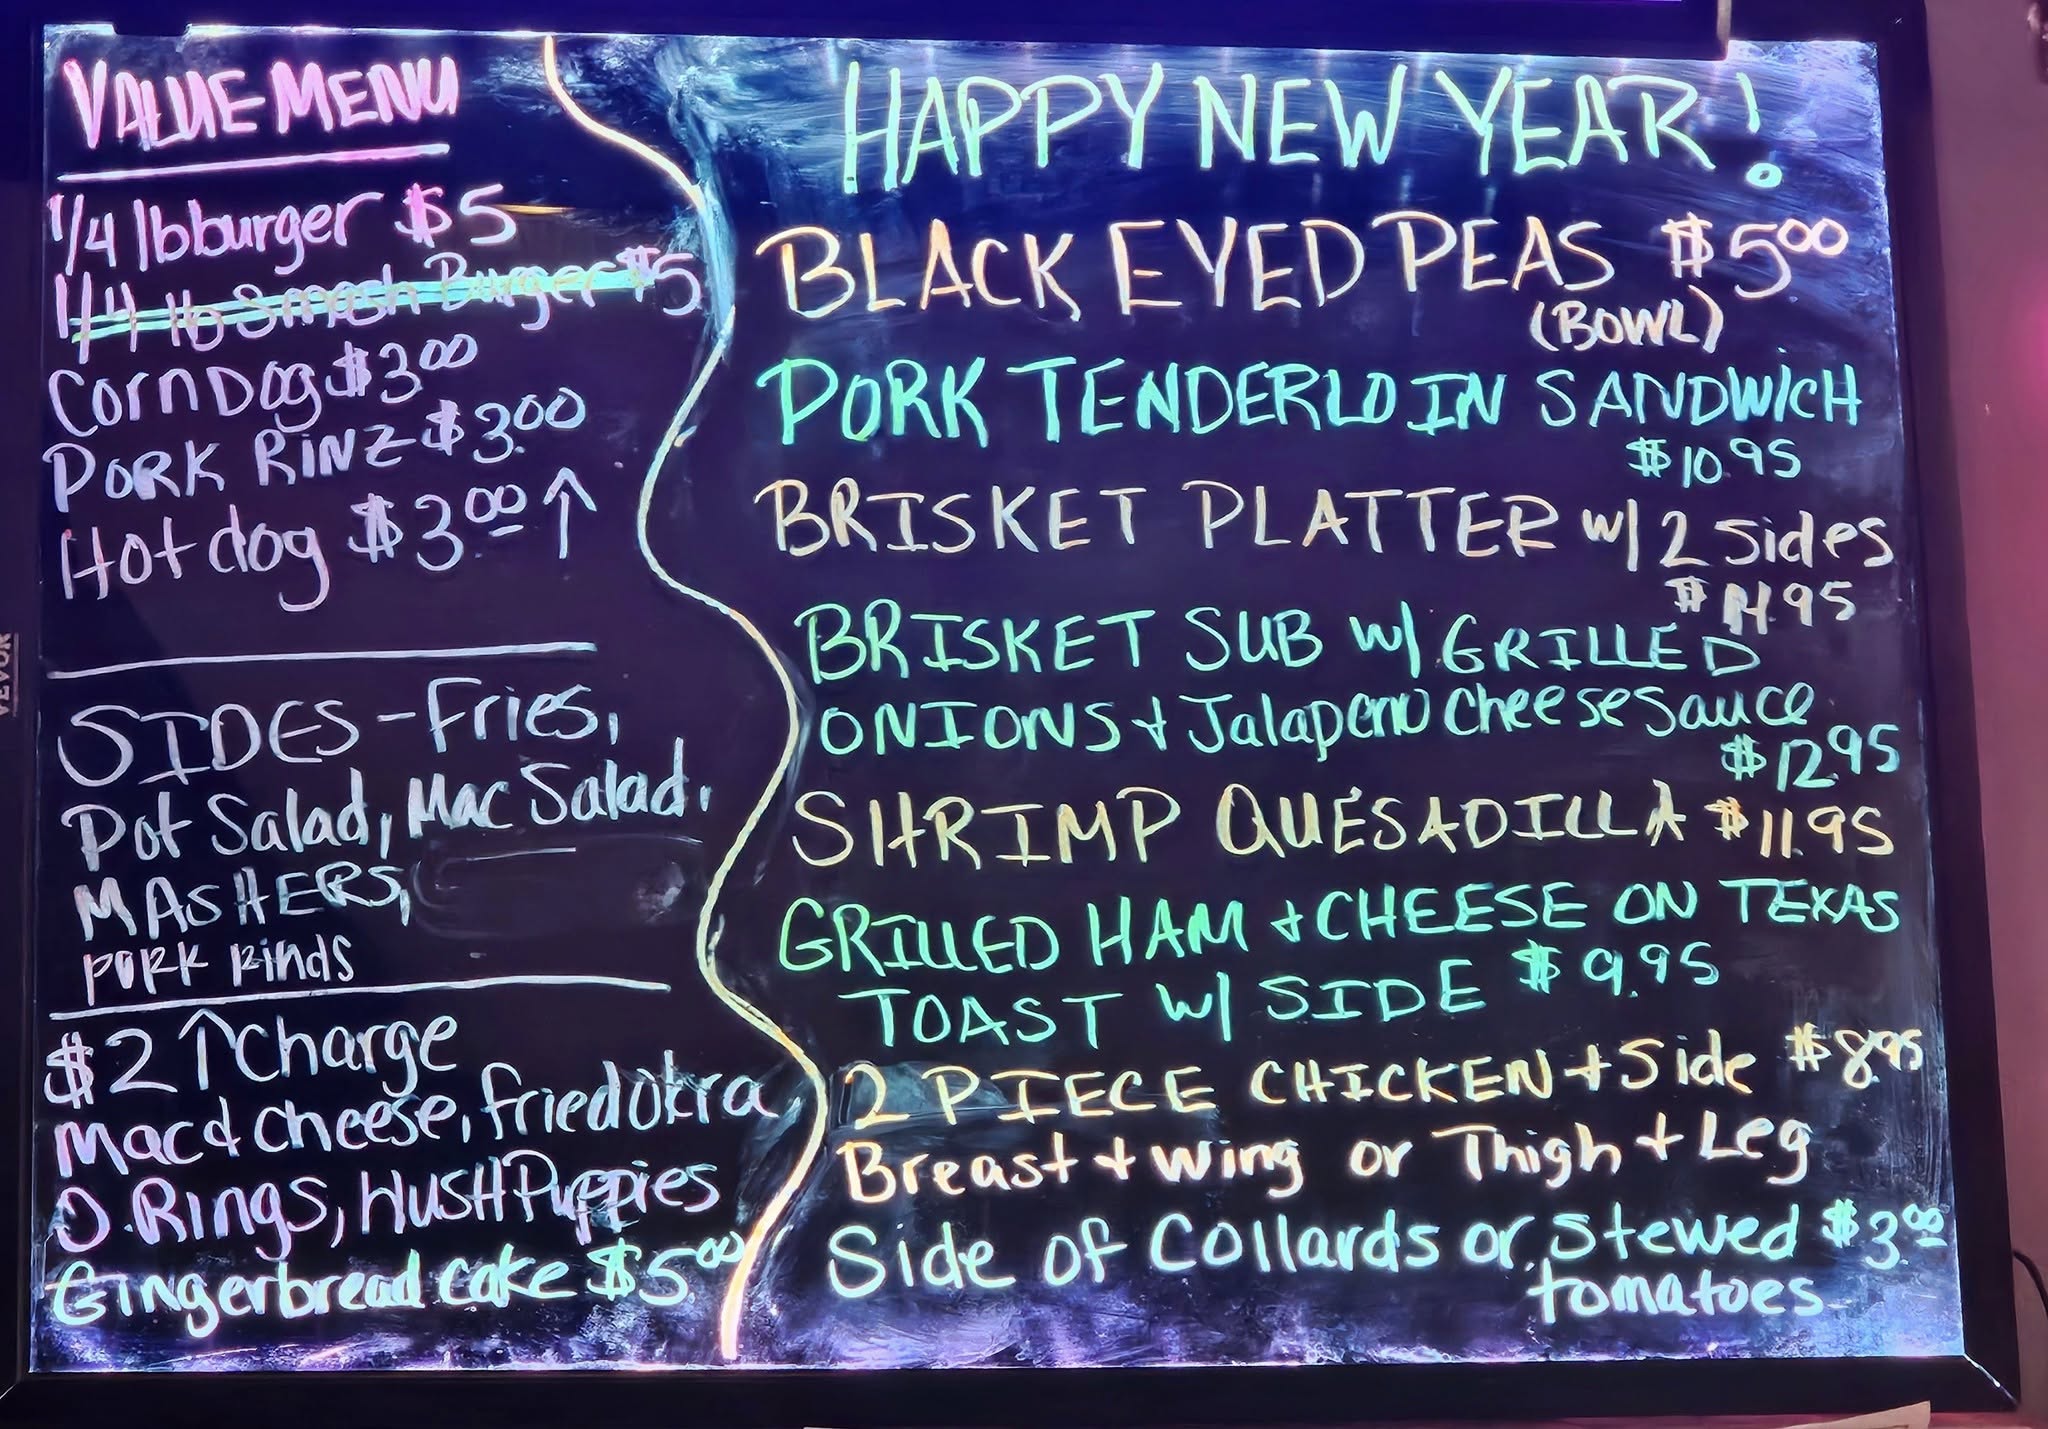 VALUE MENU
1/4 lb burger $5
1/4 lb Smash Burger $5
Corn Dog $3.00
PORK RINZ $3.00
Hot dog $3.00 ↑
SIDES - Fries,
Pot Salad, Mac Salad,
MASHERS,
PORK Rinds
$2 ↑ Charge
Mac & Cheese, Fried Okra
O. Rings, HUSH Puppies
Gingerbread cake $5.00
HAPPY NEW YEAR!
BLACK EYED PEAS $5.00
(BOWL)
PORK TENDERLOIN SANDWICH
$10.95
BRISKET PLATTER w/ 2 Sides
$14.95
BRISKET SUB w/ GRILLED
ONIONS + Jalapeno Cheese Sauce
$12.95
SHRIMP QUESADILLA $11.95
GRILLED HAM + CHEESE ON TEXAS
TOAST w/ SIDE $9.95
2 PIECE CHICKEN + Side $8.95
Breast + Wing or Thigh + Leg
Side of Collards or Stewed $3.00
tomatoes
VEVOR